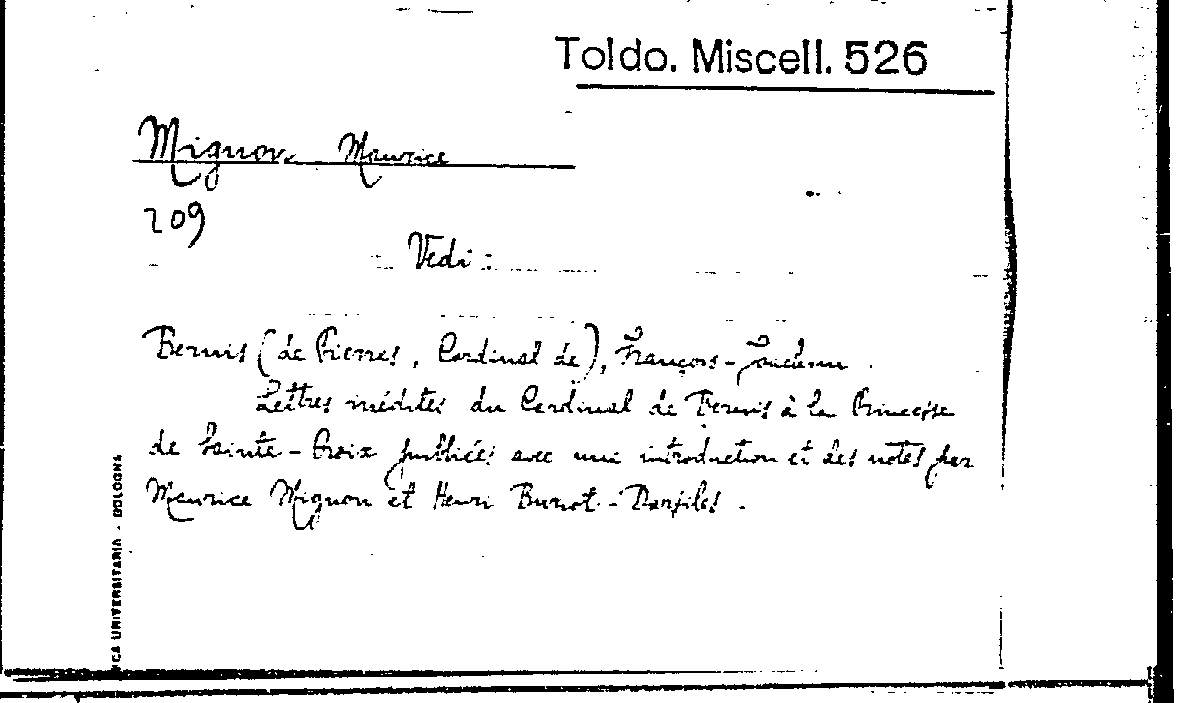 Toldo. Miscell. 526
Mignon Maurice
209
Vedi:
Bernis (de Pierres, Cardinal de), François-Joachim.
Lettres inédites du Cardinal de Bernis à la Princesse
de Sainte-Croix publiées avec une introduction et des notes par
Maurice Mignon et Henri Buriot-Darsiles.
CA UNIVERSITARIA - BOLOGNA